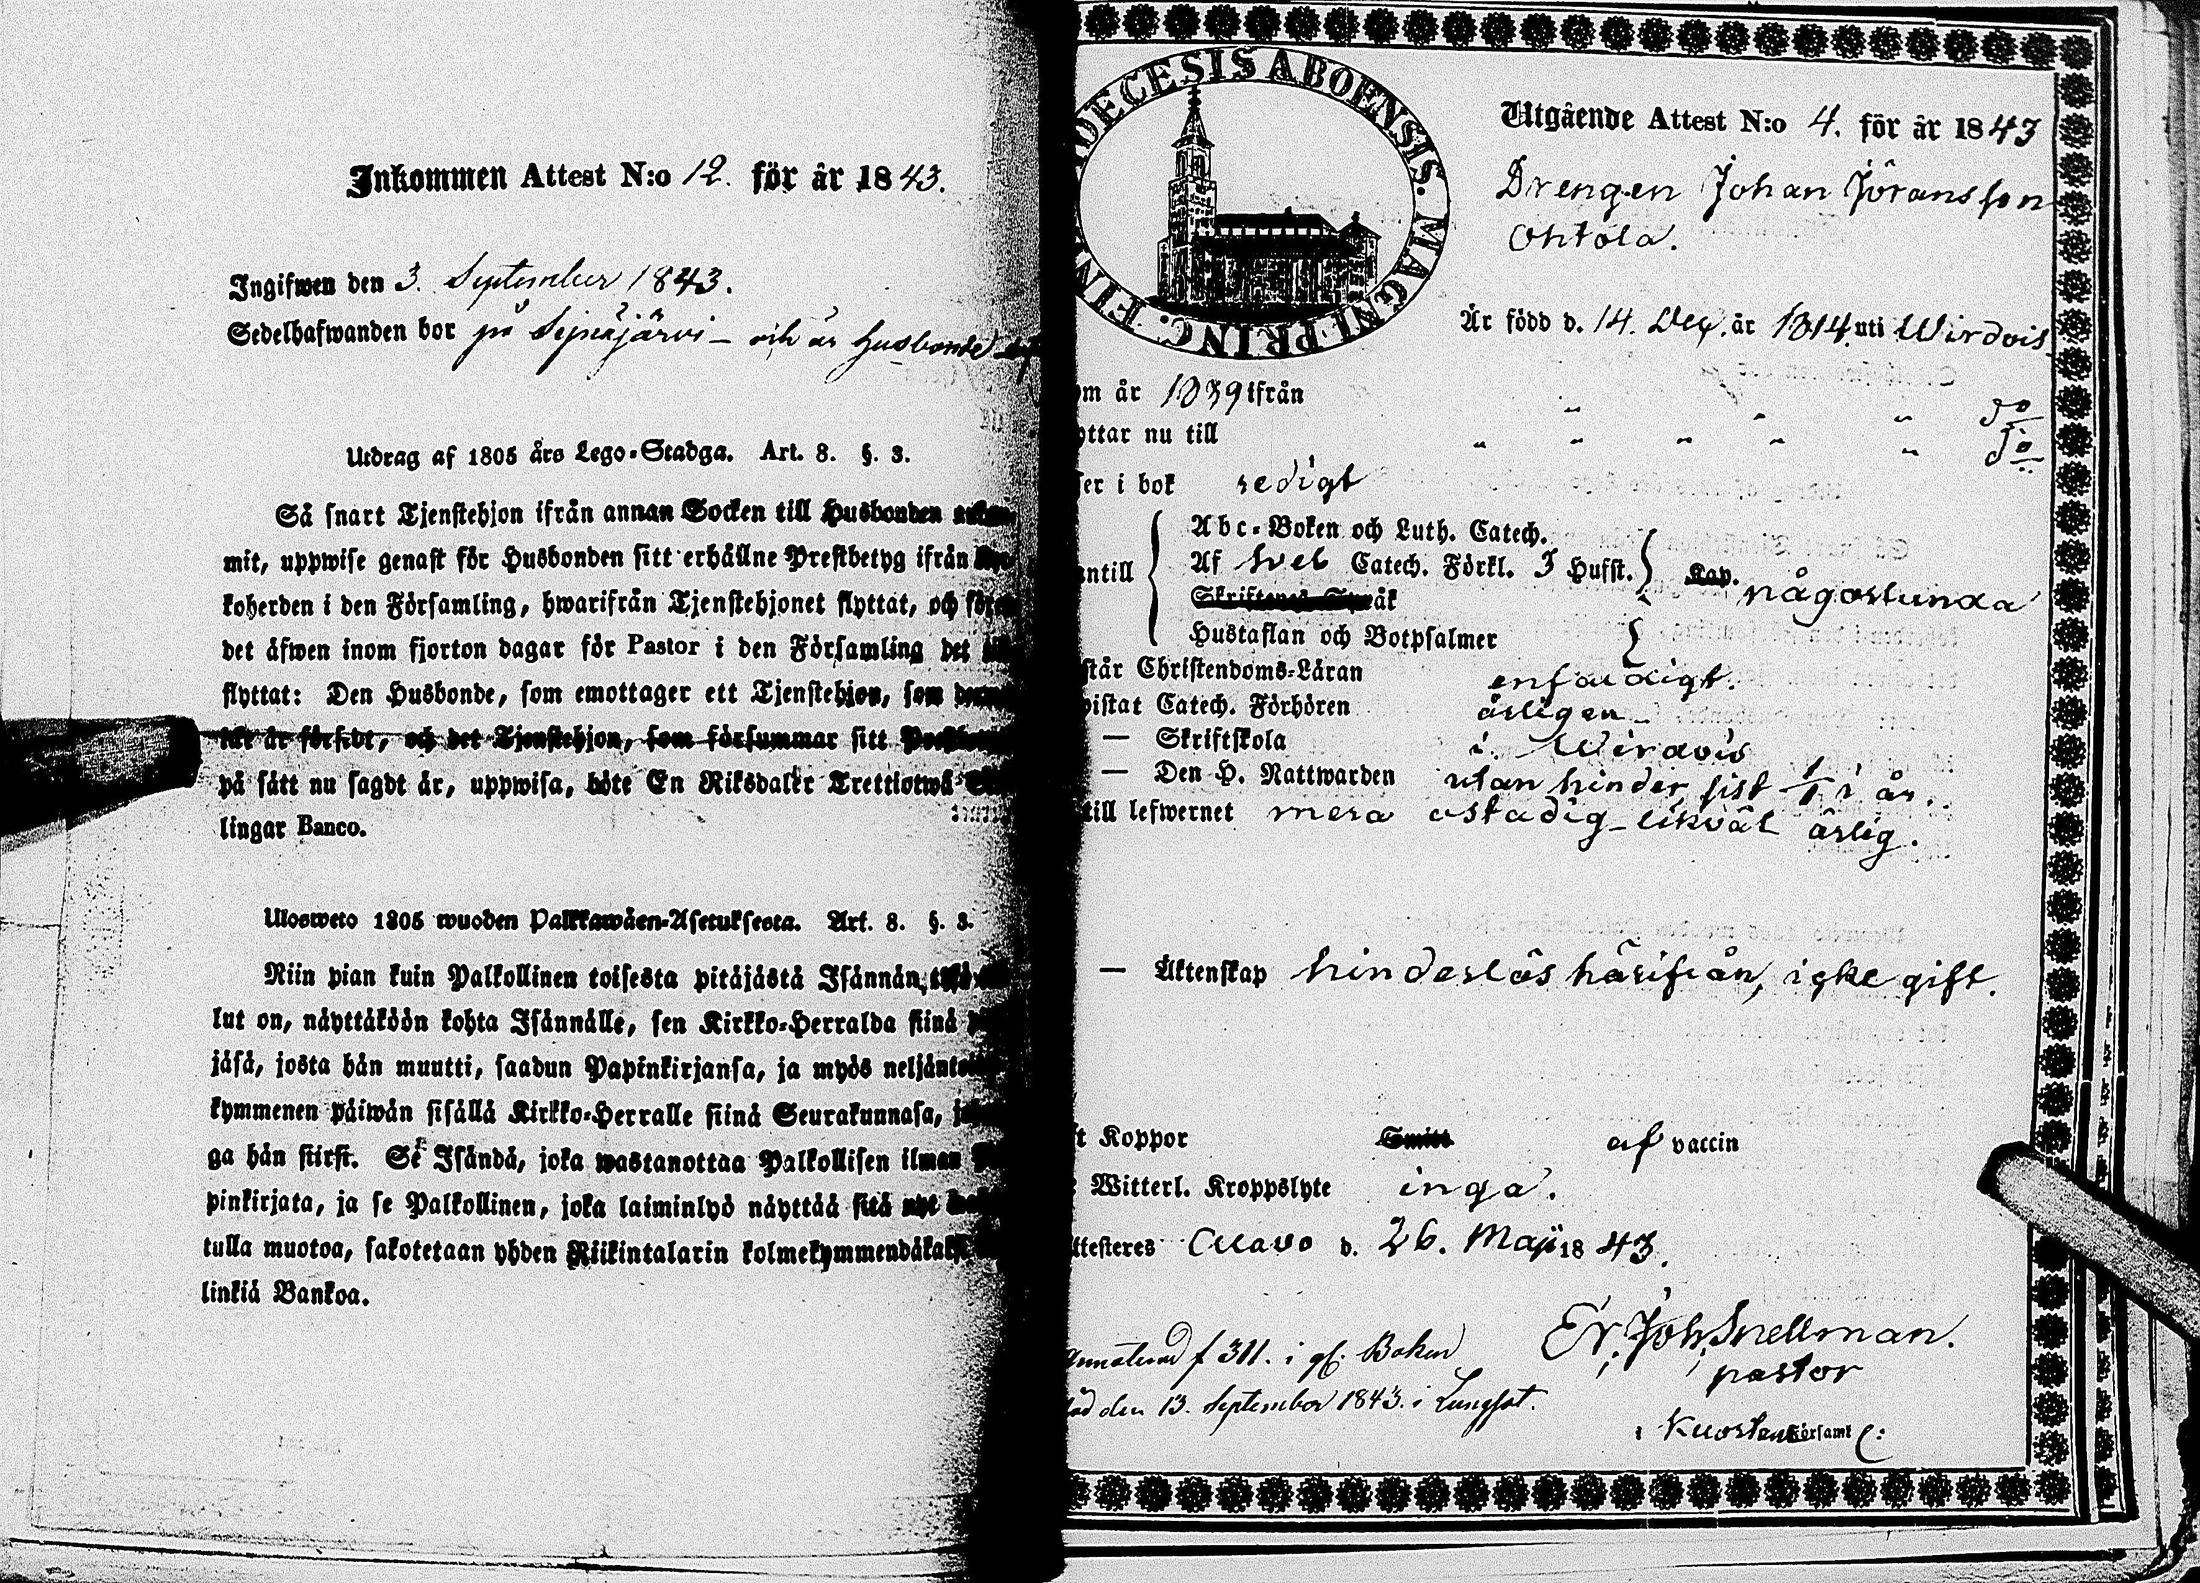 Inkommen Attest N:o 12. för år 1843.
Ingifwen den 3. September 1843.
Sedelhafwanden bor på Sejnäjärvi – och är Husbonde
Utdrag af 1805 års Lego-Stadga. Art. 8. §. 3.
Så snart Tjenstehjon ifrån annan Socken till Husbonden
mit, uppwise genast för Husbonden sitt erhållne Prestbetyg ifrån
koherden i den Församling, hwarifrån Tjenstehjonet flyttat, och
det äfwen inom fjorton dagar för Pastor i den Församling det
flyttat: Den Husbonde, som emottager ett Tjenstehjon, som
och det Tjenstehjon, som försummar sitt
på sätt nu sagdt är, uppwisa, böte En Riksdaler Trettiotwå
lingar Banco.
Ulosweto 1805 wuoden Palkkawäen-Asetuksesta. Art. 8. §. 3.
Niin pian kuin Palkollinen toisesta pitäjästä Isännän
lut on, näyttäköön kohta Isännälle, sen Kirkko-Herralda siinä
jäsä, josta hän muutti, saadun Papinkirjansa, ja myös
kymmenen päiwän sisällä Kirkko-Herralle siinä Seurakunnasa,
ga hän siirsi. Se Isändä, joka wastanottaa Palkollisen ilman
pinkirjata, ja se Palkollinen, joka laiminlyö näyttää sitä nyt
tulla muotoa, sakotetaan yhden Riikintalarin
linkiä Bankoa.
DECESIS ABOENSIS. MAGNI PRINC. FIN
Utgående Attest N:o 4. för år 1843
Drengen Johan Jöransson
Ohtola.
Är född d. 14. Dec. år 1814. uti Wirdois
om år 1839 ifrån " " " do
ttar nu till " " " " " do
ser i bok redigt
Abc-Boken och Luth. Catech.
antill Af Svel. Catech. Förkl. 3 Hufst. Kap. någorlunda
Skriftenes Språk
Hustaflan och Botpsalmer
står Christendoms-Läran enfaldigt.
vistat Catech. Förhören årligen
— Skriftskola i Wirdois
— Den H. Nattwarden utan hinder, sist 1/1 i år.
till lefwernet mera ostadig – likväl ärlig.
— Äktenskap hinderlös härifrån, icke gift.
ft Koppor Smitt af vaccin
Witterl. Kroppslyte inga.
ttesteres Alavo d. 26. Maji 1843.
Er. Joh. Snellman.
pastor
i Kuortane Församl:
Annoterad f 311. i gl. Boken
den 13. September 1843. i